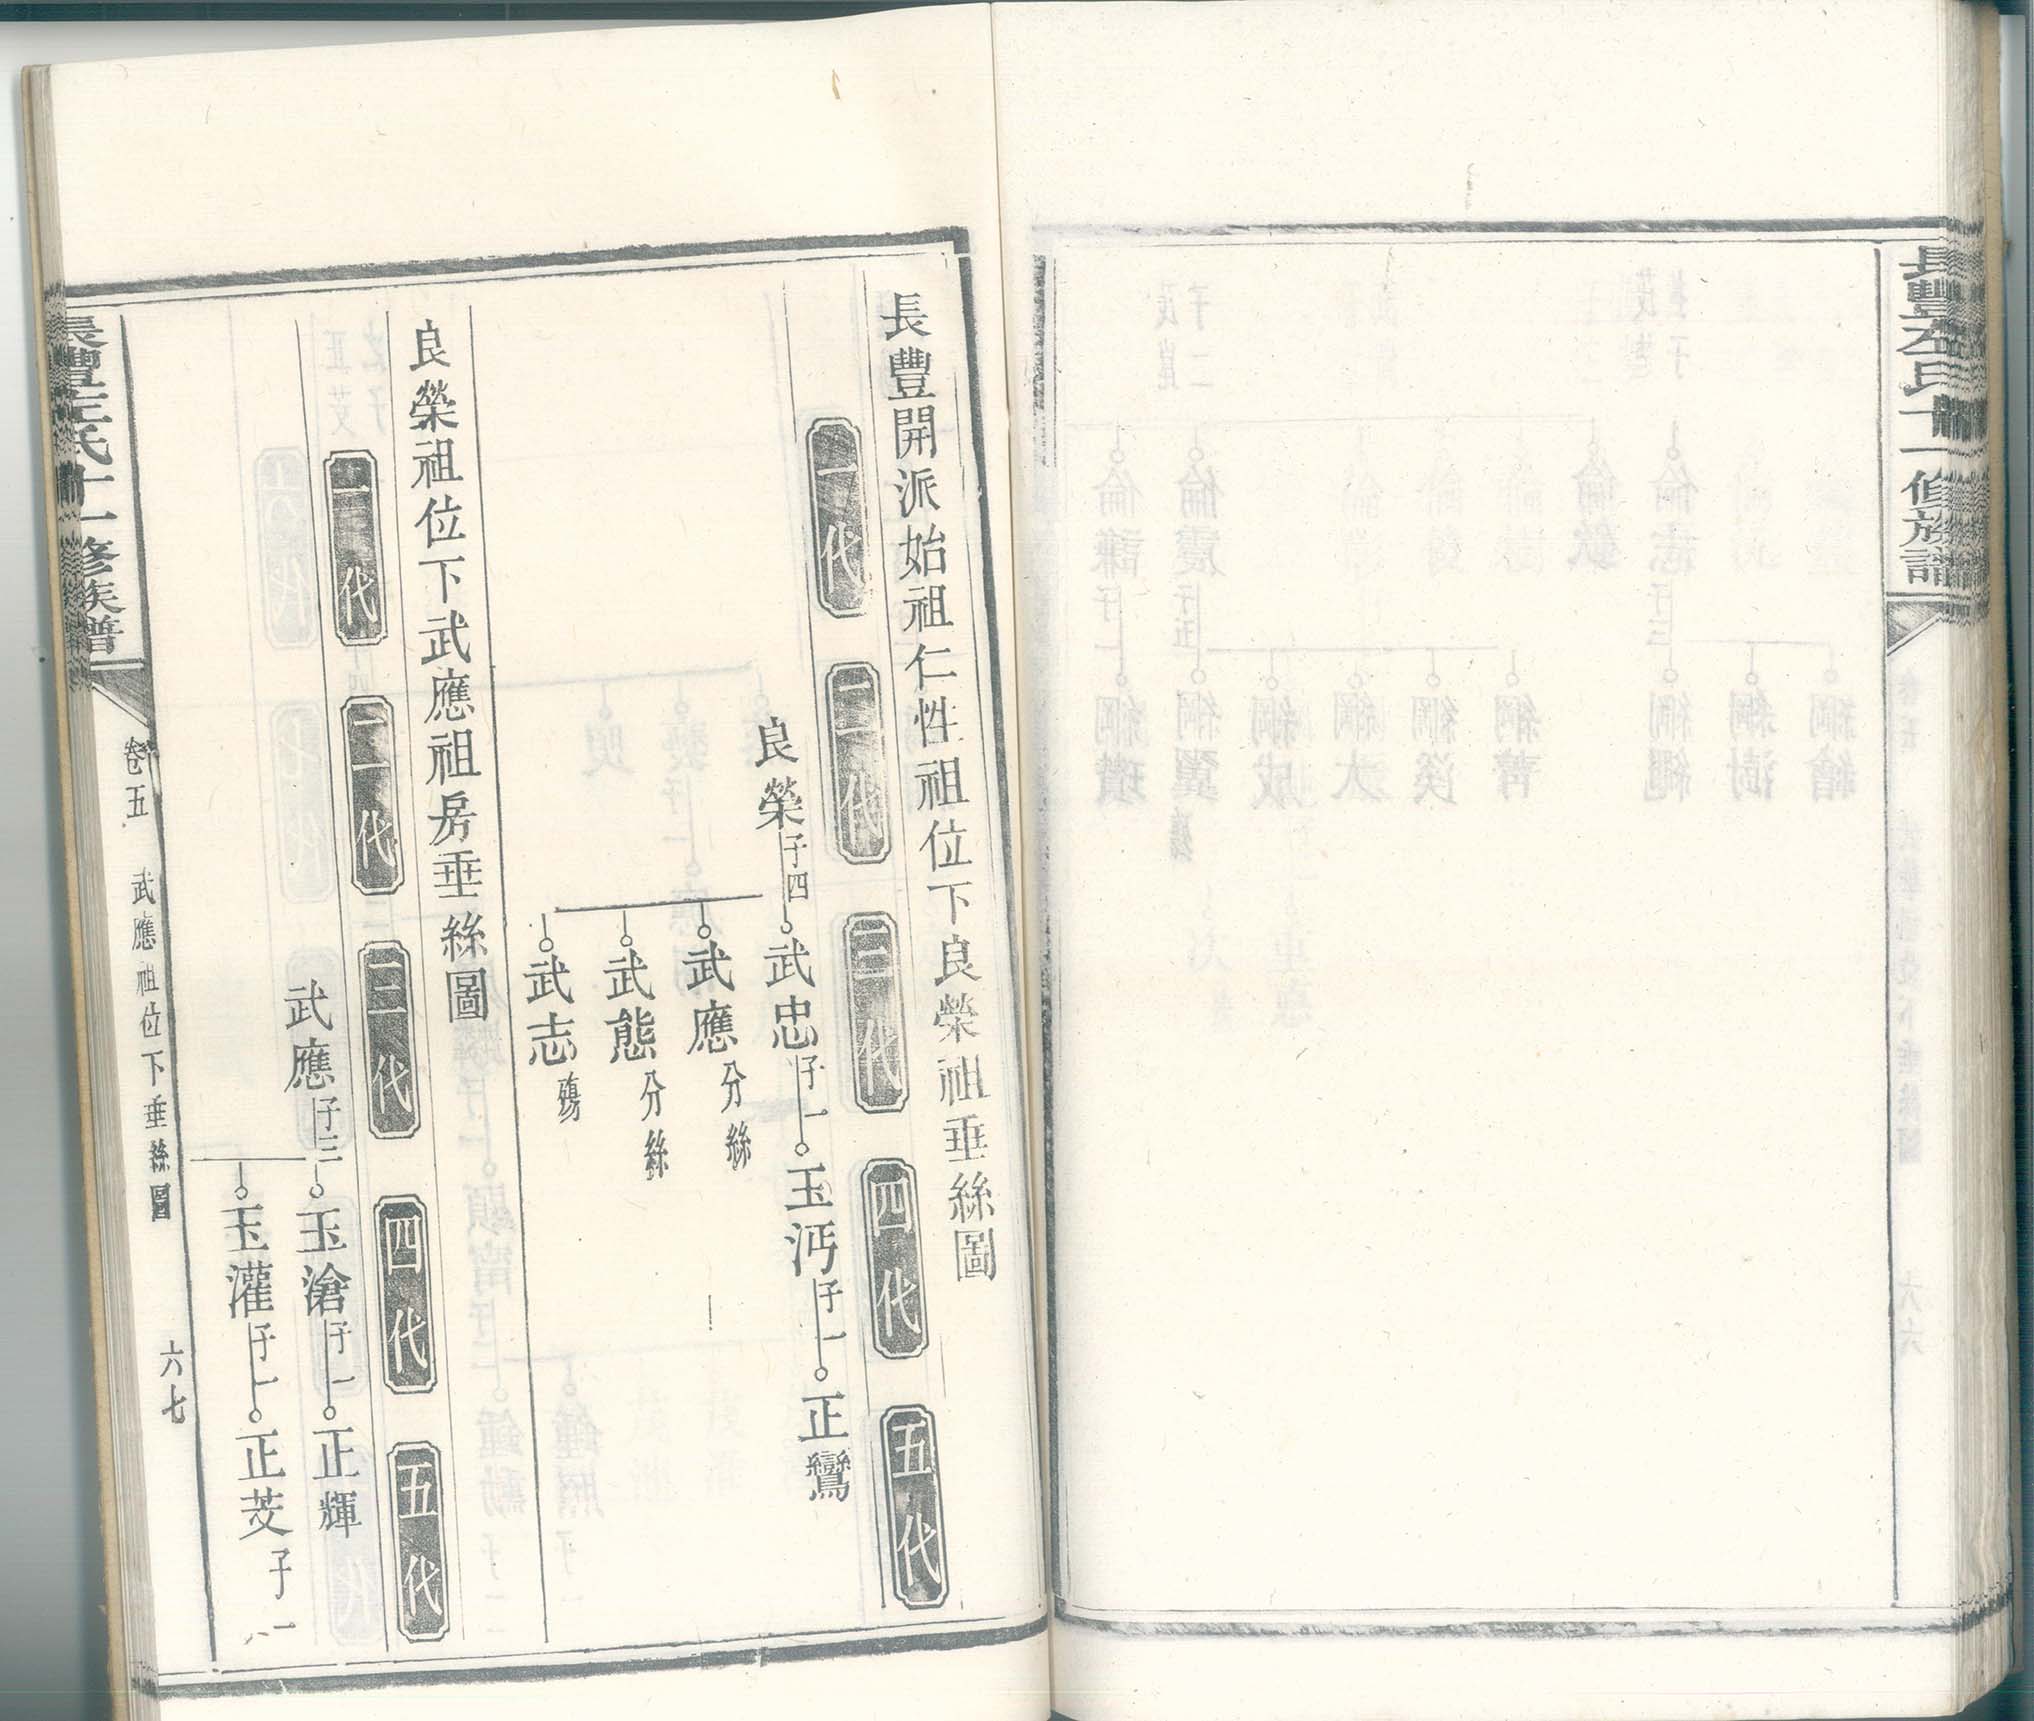 長豐左氏十一修族譜
長豐開派始祖仁性祖位下良榮祖垂絲圖
一代
二代
三代
四代
五代
良榮子四
武忠子一
玉沔子一
正鸞
武應分絲
武態分絲
武志殤
良榮祖位下武應祖房垂絲圖
一代
二代
三代
四代
五代
武應子二
玉滄子一
正輝
玉灌子一
正芨子一
長豐左氏十一修族譜
卷五
武應祖位下垂絲圖
六七